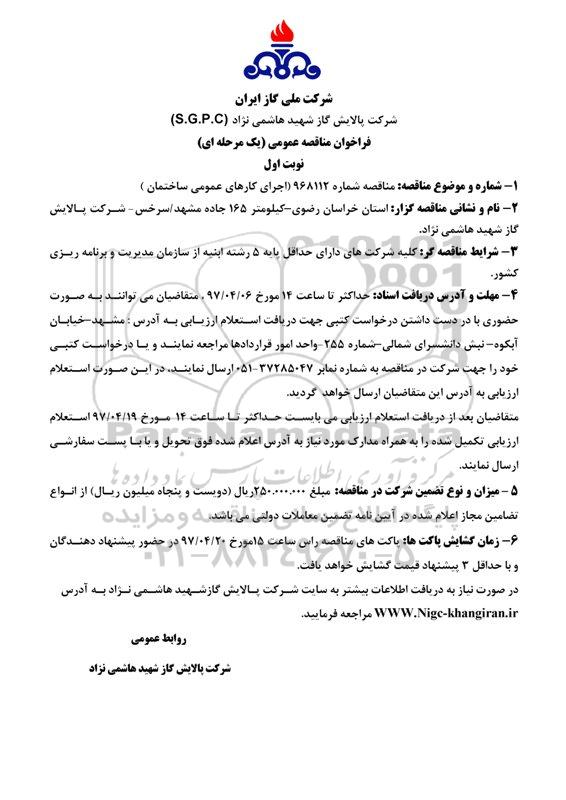 شرکت ملی گاز ایران
شرکت پالایش گاز شهید هاشمی نژاد (S.G.P.C)
فراخوان مناقصه عمومی (یک مرحله ای)
نوبت اول
۱- شماره و موضوع مناقصه: مناقصه شماره ۹۶۸۱۱۲ (اجرای کارهای عمومی ساختمان )
۲- نام و نشانی مناقصه گزار: استان خراسان رضوی-کیلومتر ۱۶۵ جاده مشهد/سرخس- شرکت پالایش
گاز شهید هاشمی نژاد.
۳- شرایط مناقصه گر: کلیه شرکت های دارای حداقل پایه ۵ رشته ابنیه از سازمان مدیریت و برنامه ریزی
کشور.
۴- مهلت و آدرس دریافت اسناد: حداکثر تا ساعت ۱۴ مورخ ۹۷/۰۴/۰۶ ، متقاضیان می توانند به صورت
حضوری با در دست داشتن درخواست کتبی جهت دریافت استعلام ارزیابی به آدرس : مشهد-خیابان
آبکوه- نبش دانشسرای شمالی-شماره ۲۵۵-واحد امور قراردادها مراجعه نمایند و یا درخواست کتبی
خود را جهت شرکت در مناقصه به شماره نمابر ۳۷۲۸۵۰۴۷-۰۵۱ ارسال نمایند، در این صورت استعلام
ارزیابی به آدرس این متقاضیان ارسال خواهد گردید.
متقاضیان بعد از دریافت استعلام ارزیابی می بایست حداکثر تا ساعت ۱۴ مورخ ۹۷/۰۴/۱۹ استعلام
ارزیابی تکمیل شده را به همراه مدارک مورد نیاز به آدرس اعلام شده فوق تحویل و یا با پست سفارشی
ارسال نمایند.
۵ - میزان و نوع تضمین شرکت در مناقصه: مبلغ ۲۵۰.۰۰۰.۰۰۰ریال (دویست و پنجاه میلیون ریال) از انواع
تضامین مجاز اعلام شده در آیین نامه تضمین معاملات دولتی می باشد.
۶- زمان گشایش پاکت ها: پاکت های مناقصه راس ساعت ۱۵مورخ ۹۷/۰۴/۲۰ در حضور پیشنهاد دهندگان
و با حداقل ۳ پیشنهاد قیمت گشایش خواهد یافت.
در صورت نیاز به دریافت اطلاعات بیشتر به سایت شرکت پالایش گازشهید هاشمی نژاد به آدرس
WWW.Nigc-khangiran.ir مراجعه فرمایید.
روابط عمومی
شرکت پالایش گاز شهید هاشمی نژاد
ParsNamadData
مرکز فرآوری اطلاعات پارس نماد داده ها
۰۲۱-۸۸۳۴۹۶۷۰-۵